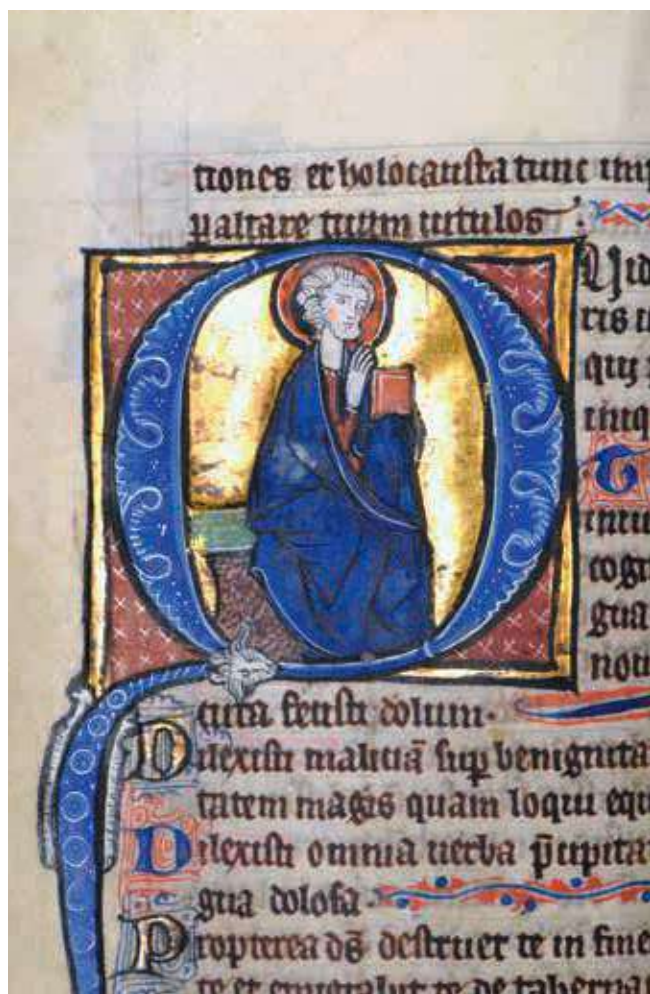 tiones et holocausta tunc imp
p altare tuum uitulos
QUid
ris i
qui
iniq
T
iniu
cogi
gua
nou
cuta fecisti dolum.
Dilexisti malitiā sup̱ benignita
tatem magis quam loqui equ
Dilexisti omnia uerba p̄cipita
gua dolosa.
Propterea ds̄ destruet te in fine
te et emigrabit te de taberna